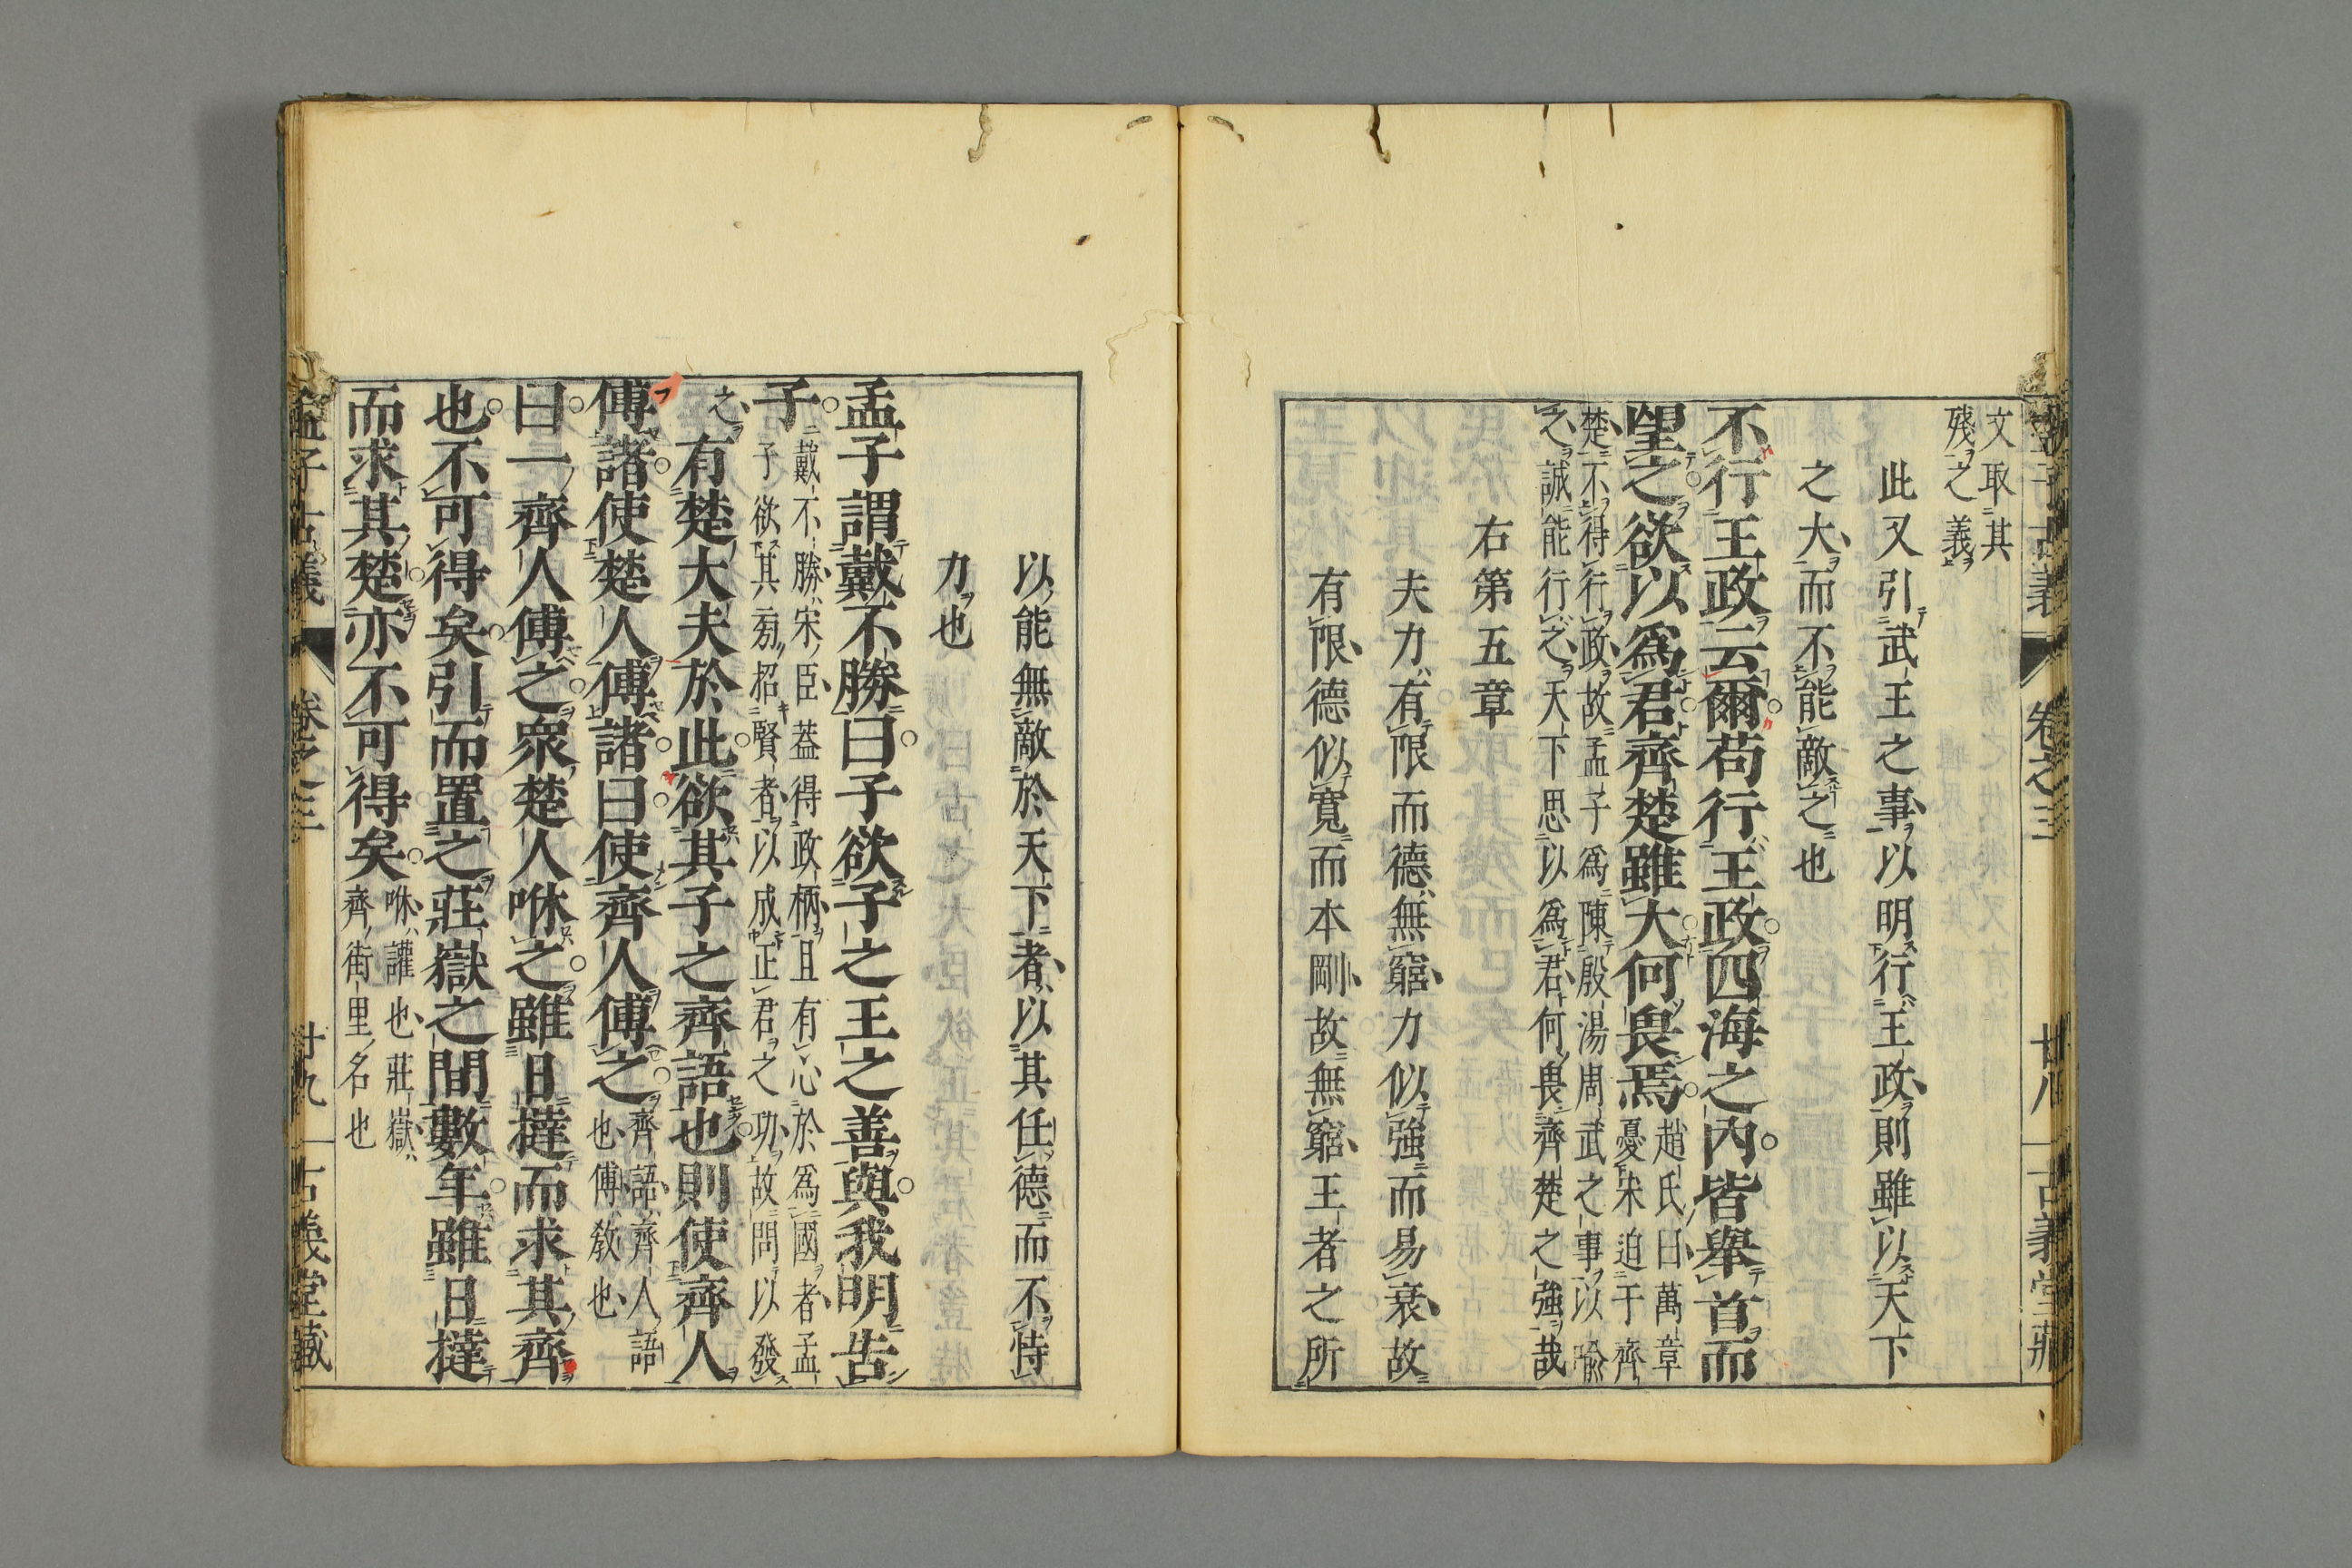 文取其
殘之義
此又引武王之事以明行王政則雖以天下
之大而不能敵之也
不行王政云爾苟行王政四海之內皆舉首而
望之欲以爲君齊楚雖大何畏焉趙氏曰萬章
憂宋迫于齊
楚不得行政故孟子爲陳殷湯周武之事以喩
之誠能行之天下思以爲君何畏齊楚之強哉
右第五章
夫力有限而德無窮力似強而易衰故
有限德似寬而本剛故無窮王者之所
卷之三
廿八
以能無敵於天下者以其任德而不恃
力也
孟子謂戴不勝曰子欲子之王之善與我明告
子戴不勝宋臣蓋得政柄且有心於爲國者孟
子欲其旁招賢者以成正君之功故問以發
之有楚大夫於此欲其子之齊語也則使齊人
傅諸使楚人傅諸曰使齊人傅之齊語齊人語
也傅敎也
曰一齊人傅之衆楚人咻之雖日撻而求其齊
也不可得矣引而置之莊嶽之間數年雖日撻
而求其楚亦不可得矣咻讙也莊嶽
齊街里名也
孟子古義
卷之三
廿九
古義堂藏